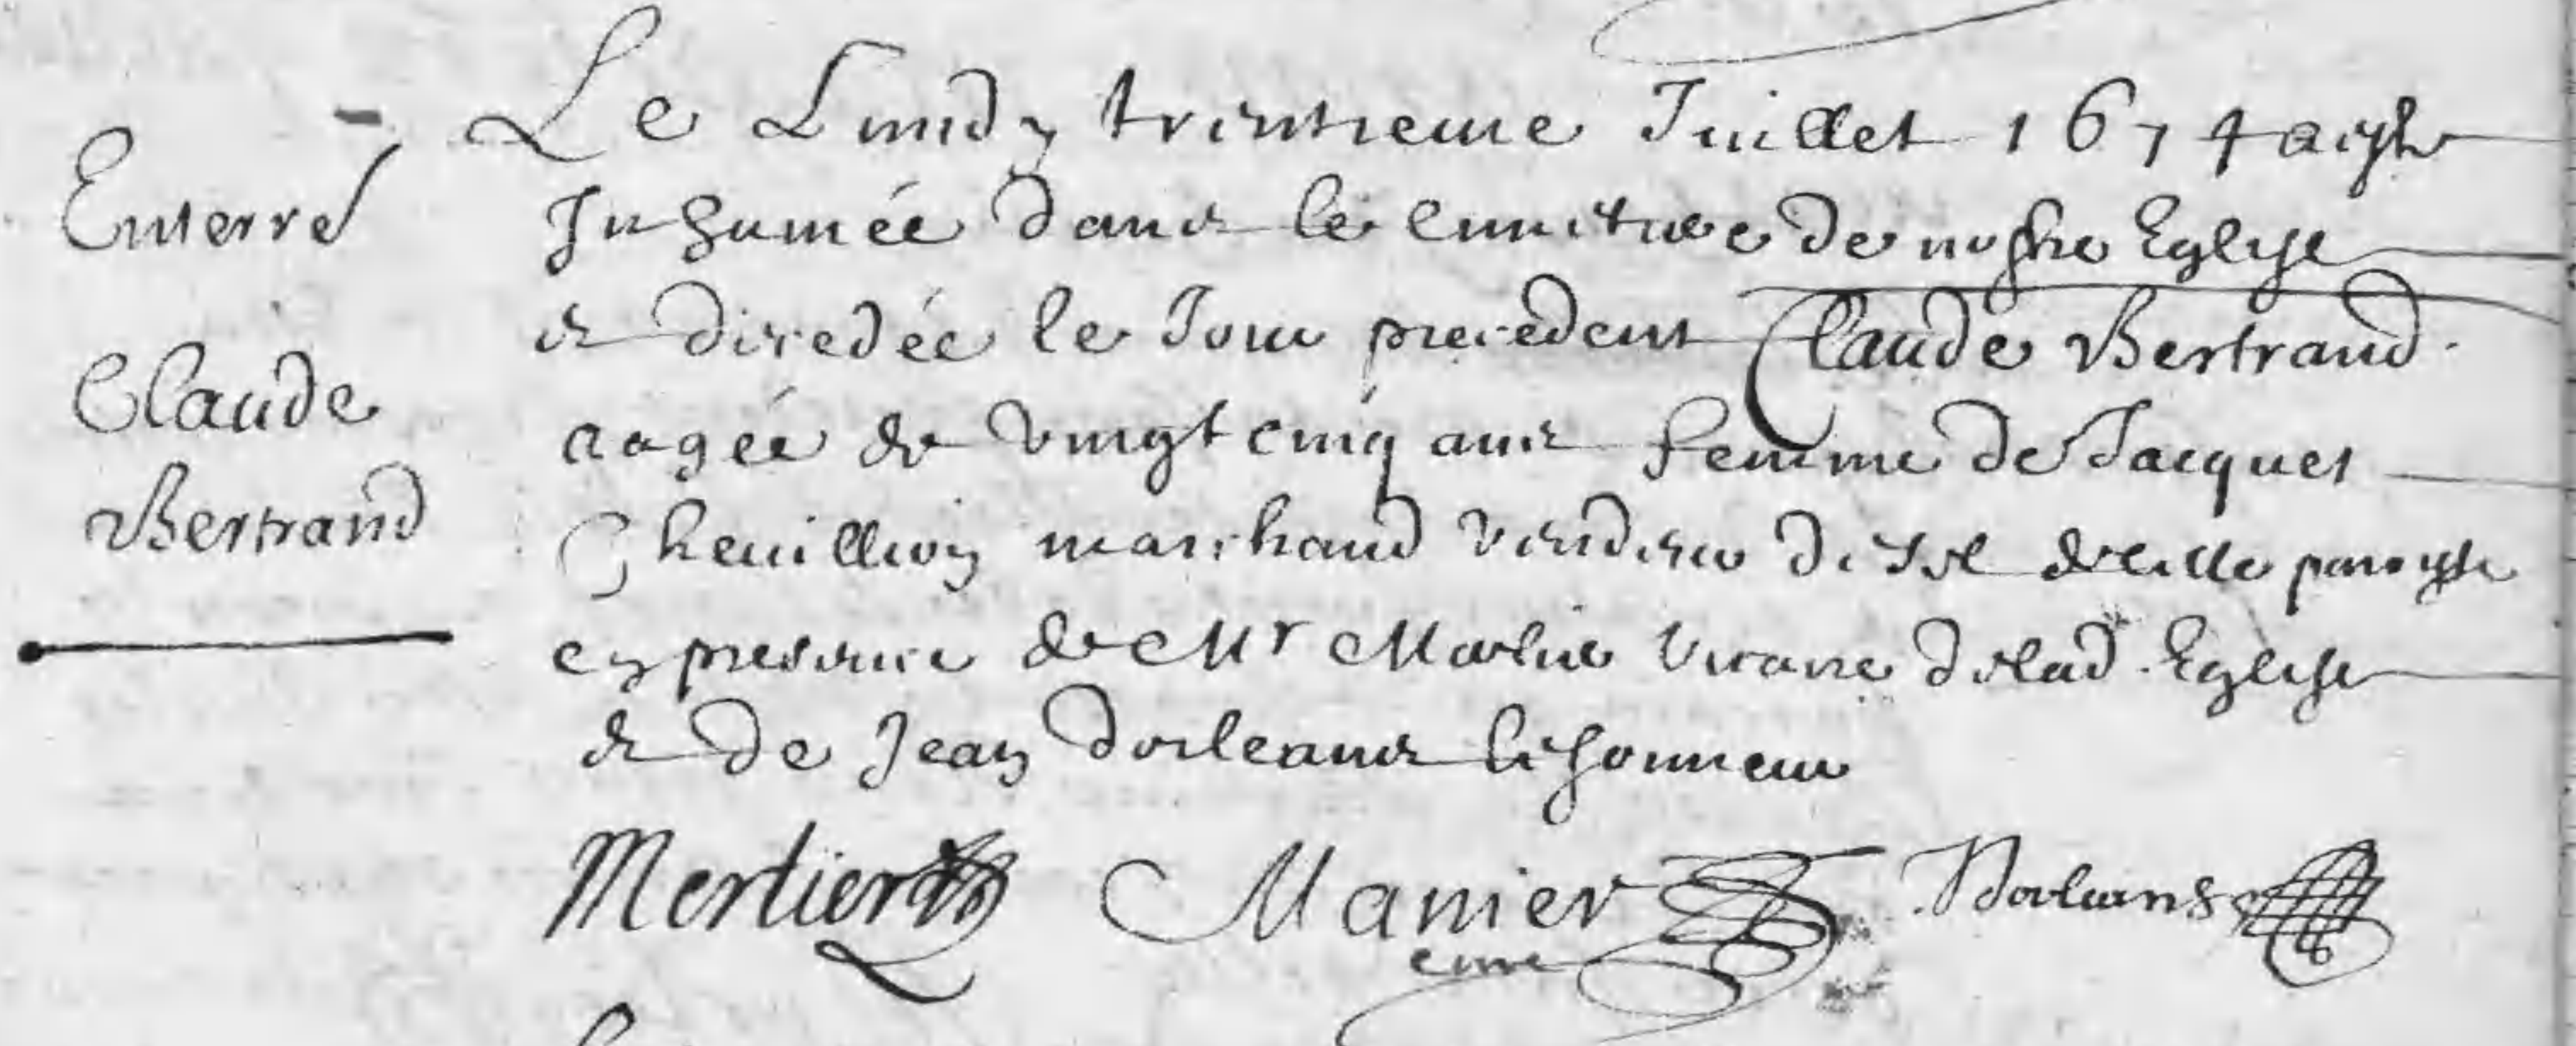 Enterré
Claude
Bertrand
Le Lundy trentieme Juillet 1674 a esté
Inhumée dans le cimetiere de nostre Eglise
et decedée le Jour precedent Claude Bertrand
aagée de vingt cinq ans femme de Jacques
Cheuillion marchand de cette paroisse
en presence de Mr vicaire de lad. Eglise
et de Jean dorleans
Manier
curé
Dorleans